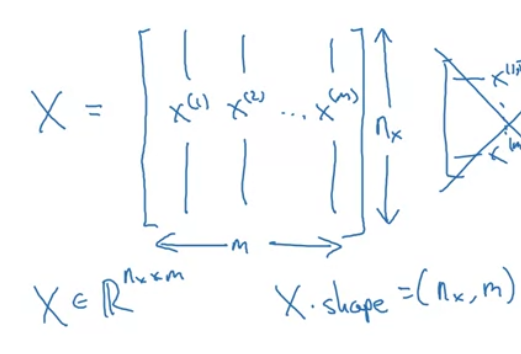 X = [ x^(1) x^(2) ... x^(m) ] n_x
x^(1)
x^(m)
m
X ∈ ℝ^(n_x × m)
X.shape = (n_x, m)